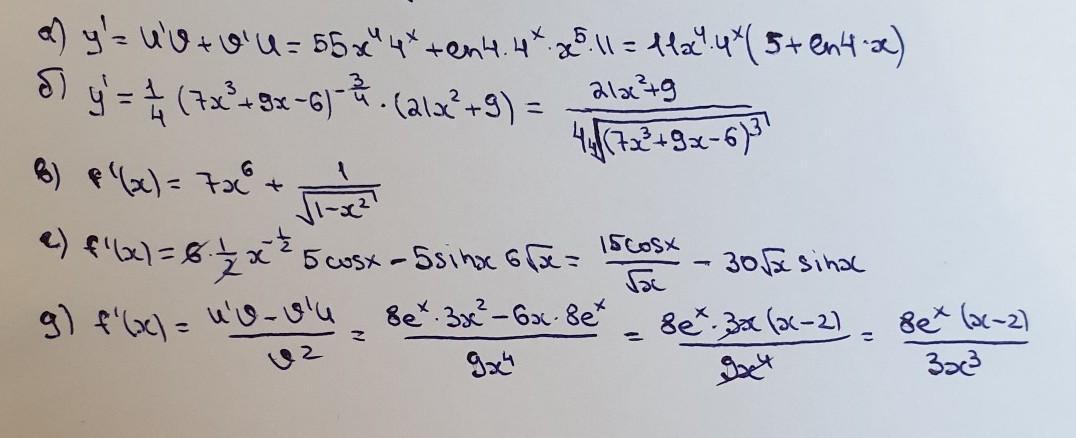 а) y' = u'v + v'u = 55x⁴ 4ˣ + ln4·4ˣ·x⁵·11 = 11x⁴·4ˣ(5 + ln4·x)
б) y' = 1/4 (7x³+9x-6)^(-3/4) · (21x²+9) = (21x²+9)/(4 ⁴√(7x³+9x-6)³)
в) f'(x) = 7x⁶ + 1/√(1-x²)
г) f'(x) = 6·1/2 x^(-1/2) 5cosx - 5sinx 6√x = 15cosx/√x - 30√x sinx
д) f'(x) = (u'v - v'u)/v² = (8eˣ·3x² - 6x·8eˣ)/(9x⁴) = (8eˣ·3x(x-2))/(9x⁴) = (8eˣ(x-2))/(3x³)